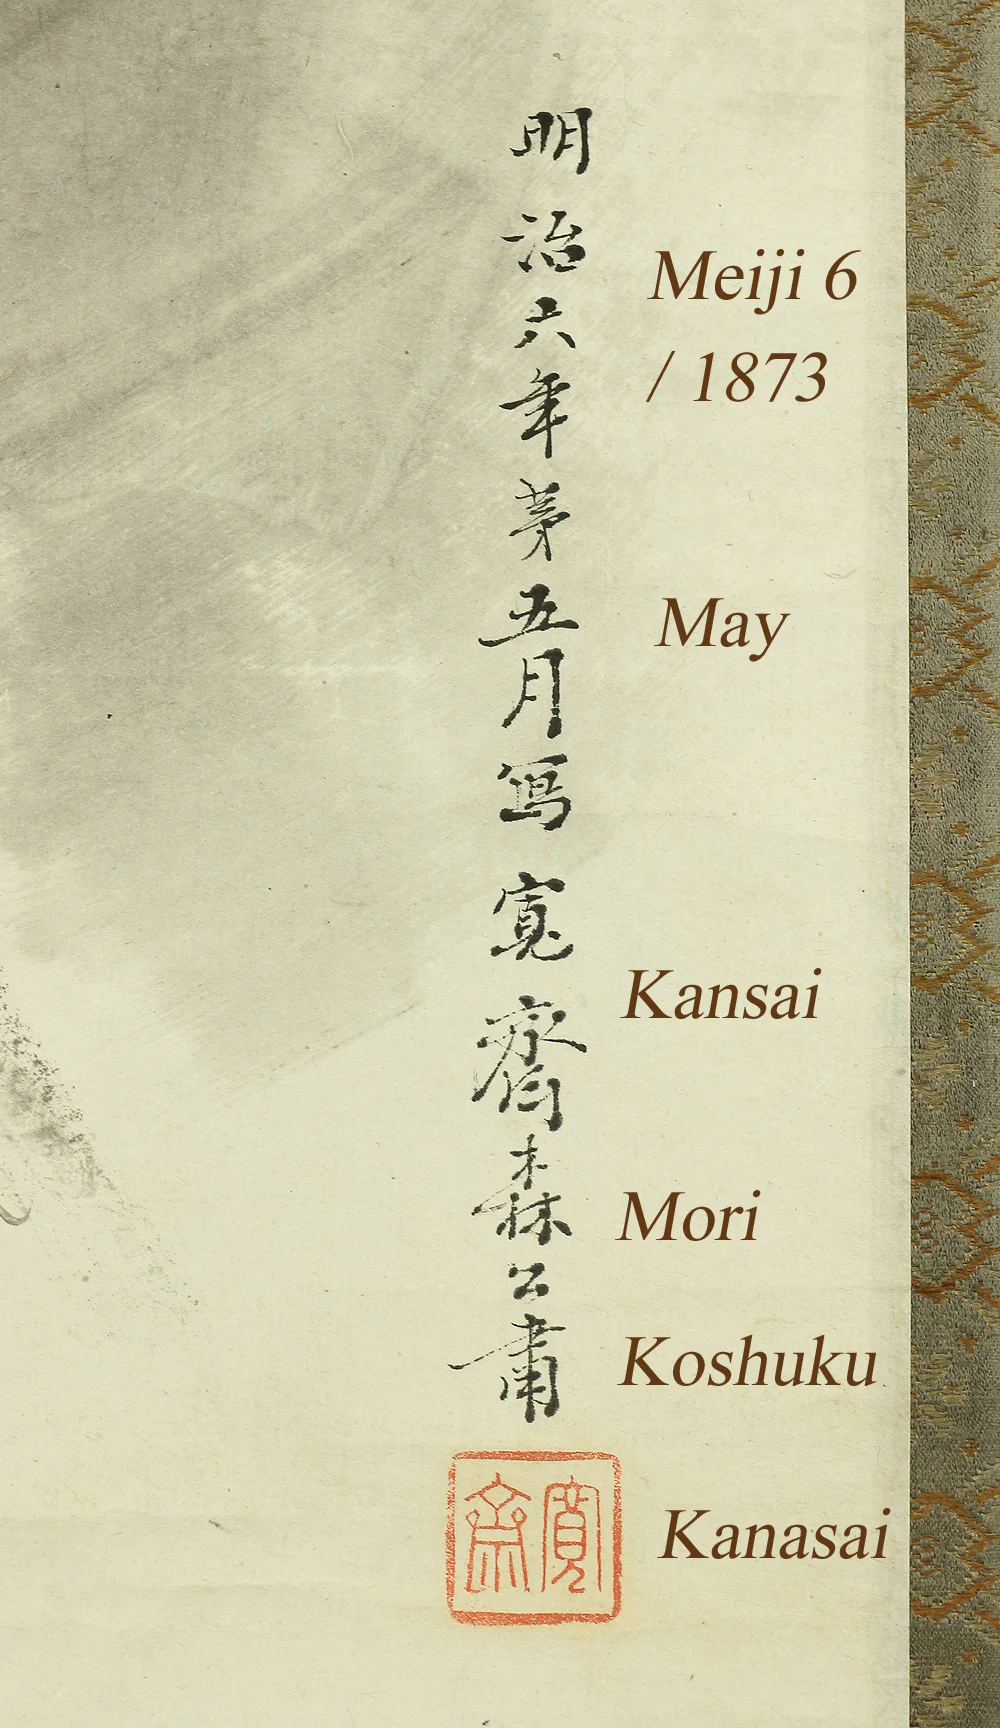 明治六年第五月寫寬齋森公肅
Meiji 6
/ 1873
May
Kansai
Mori
Koshuku
寬齋
Kanasai